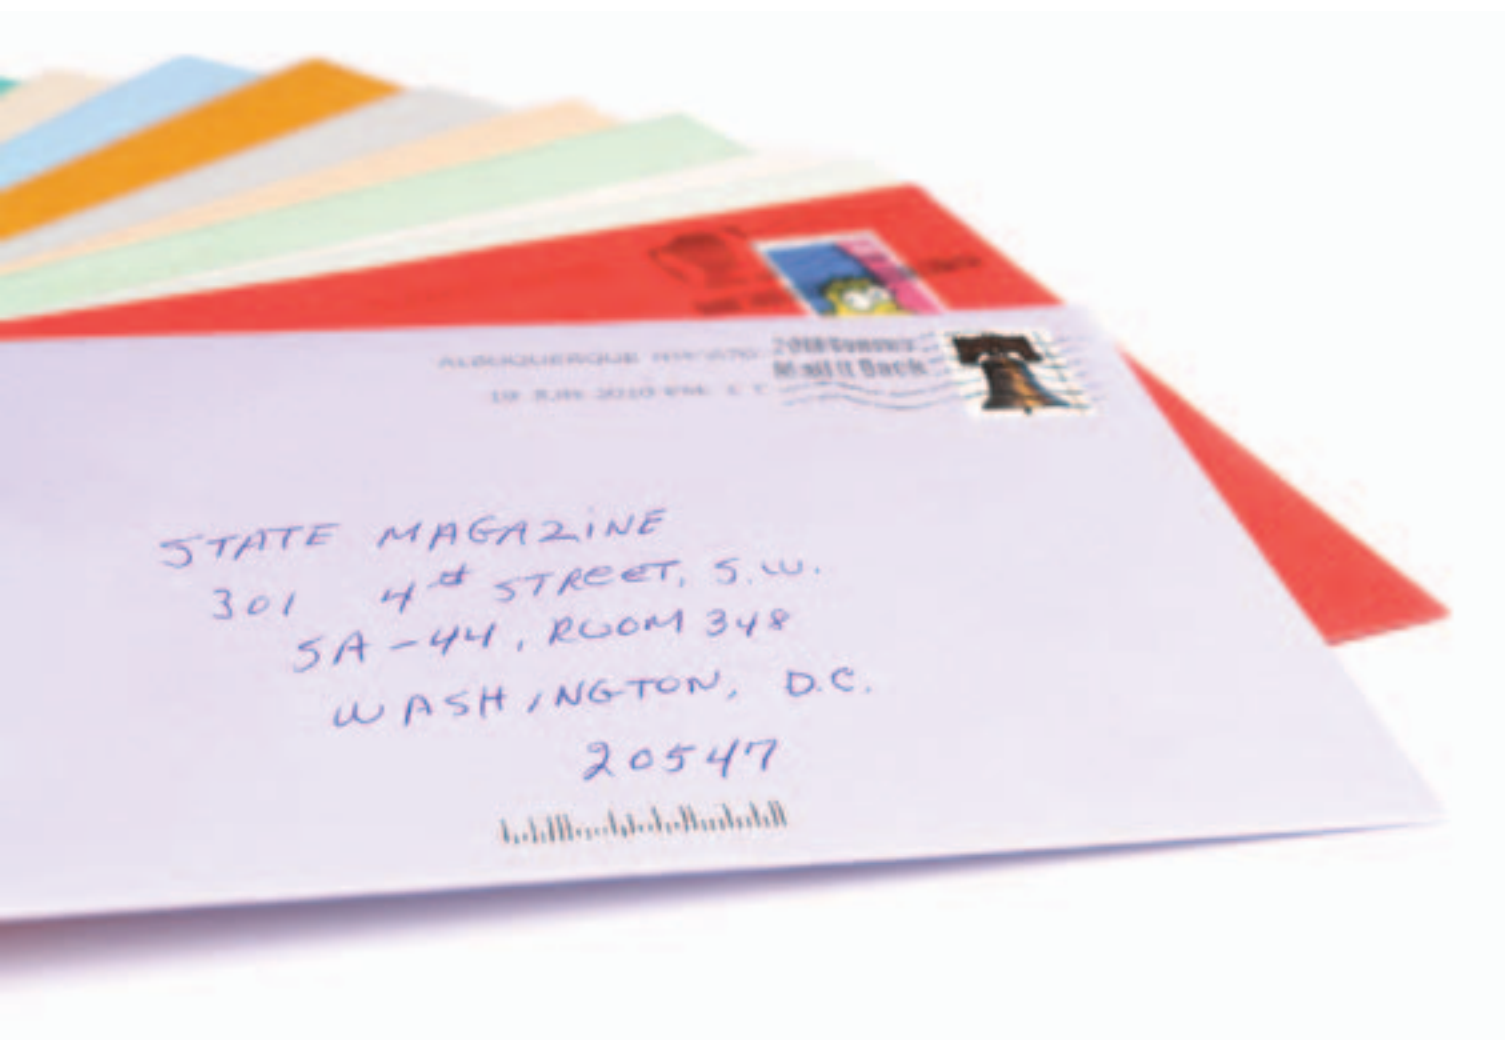 ALBUQUERQUE
2010 Census
Mail It Back
STATE MAGAZINE
301 4th STREET, S.W.
SA-44, ROOM 348
WASHINGTON, D.C.
20547